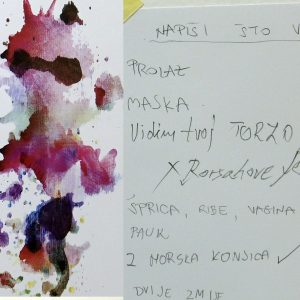 NAPIŠI ŠTO V
PROLAZ
MASKA
Vidim tvoj TORZO
X Rorsahove
ŠPRICA, RIBE, VAGINA
PAUK
2 MORSKA KONJICA ✓
DVIJE ZMIJE